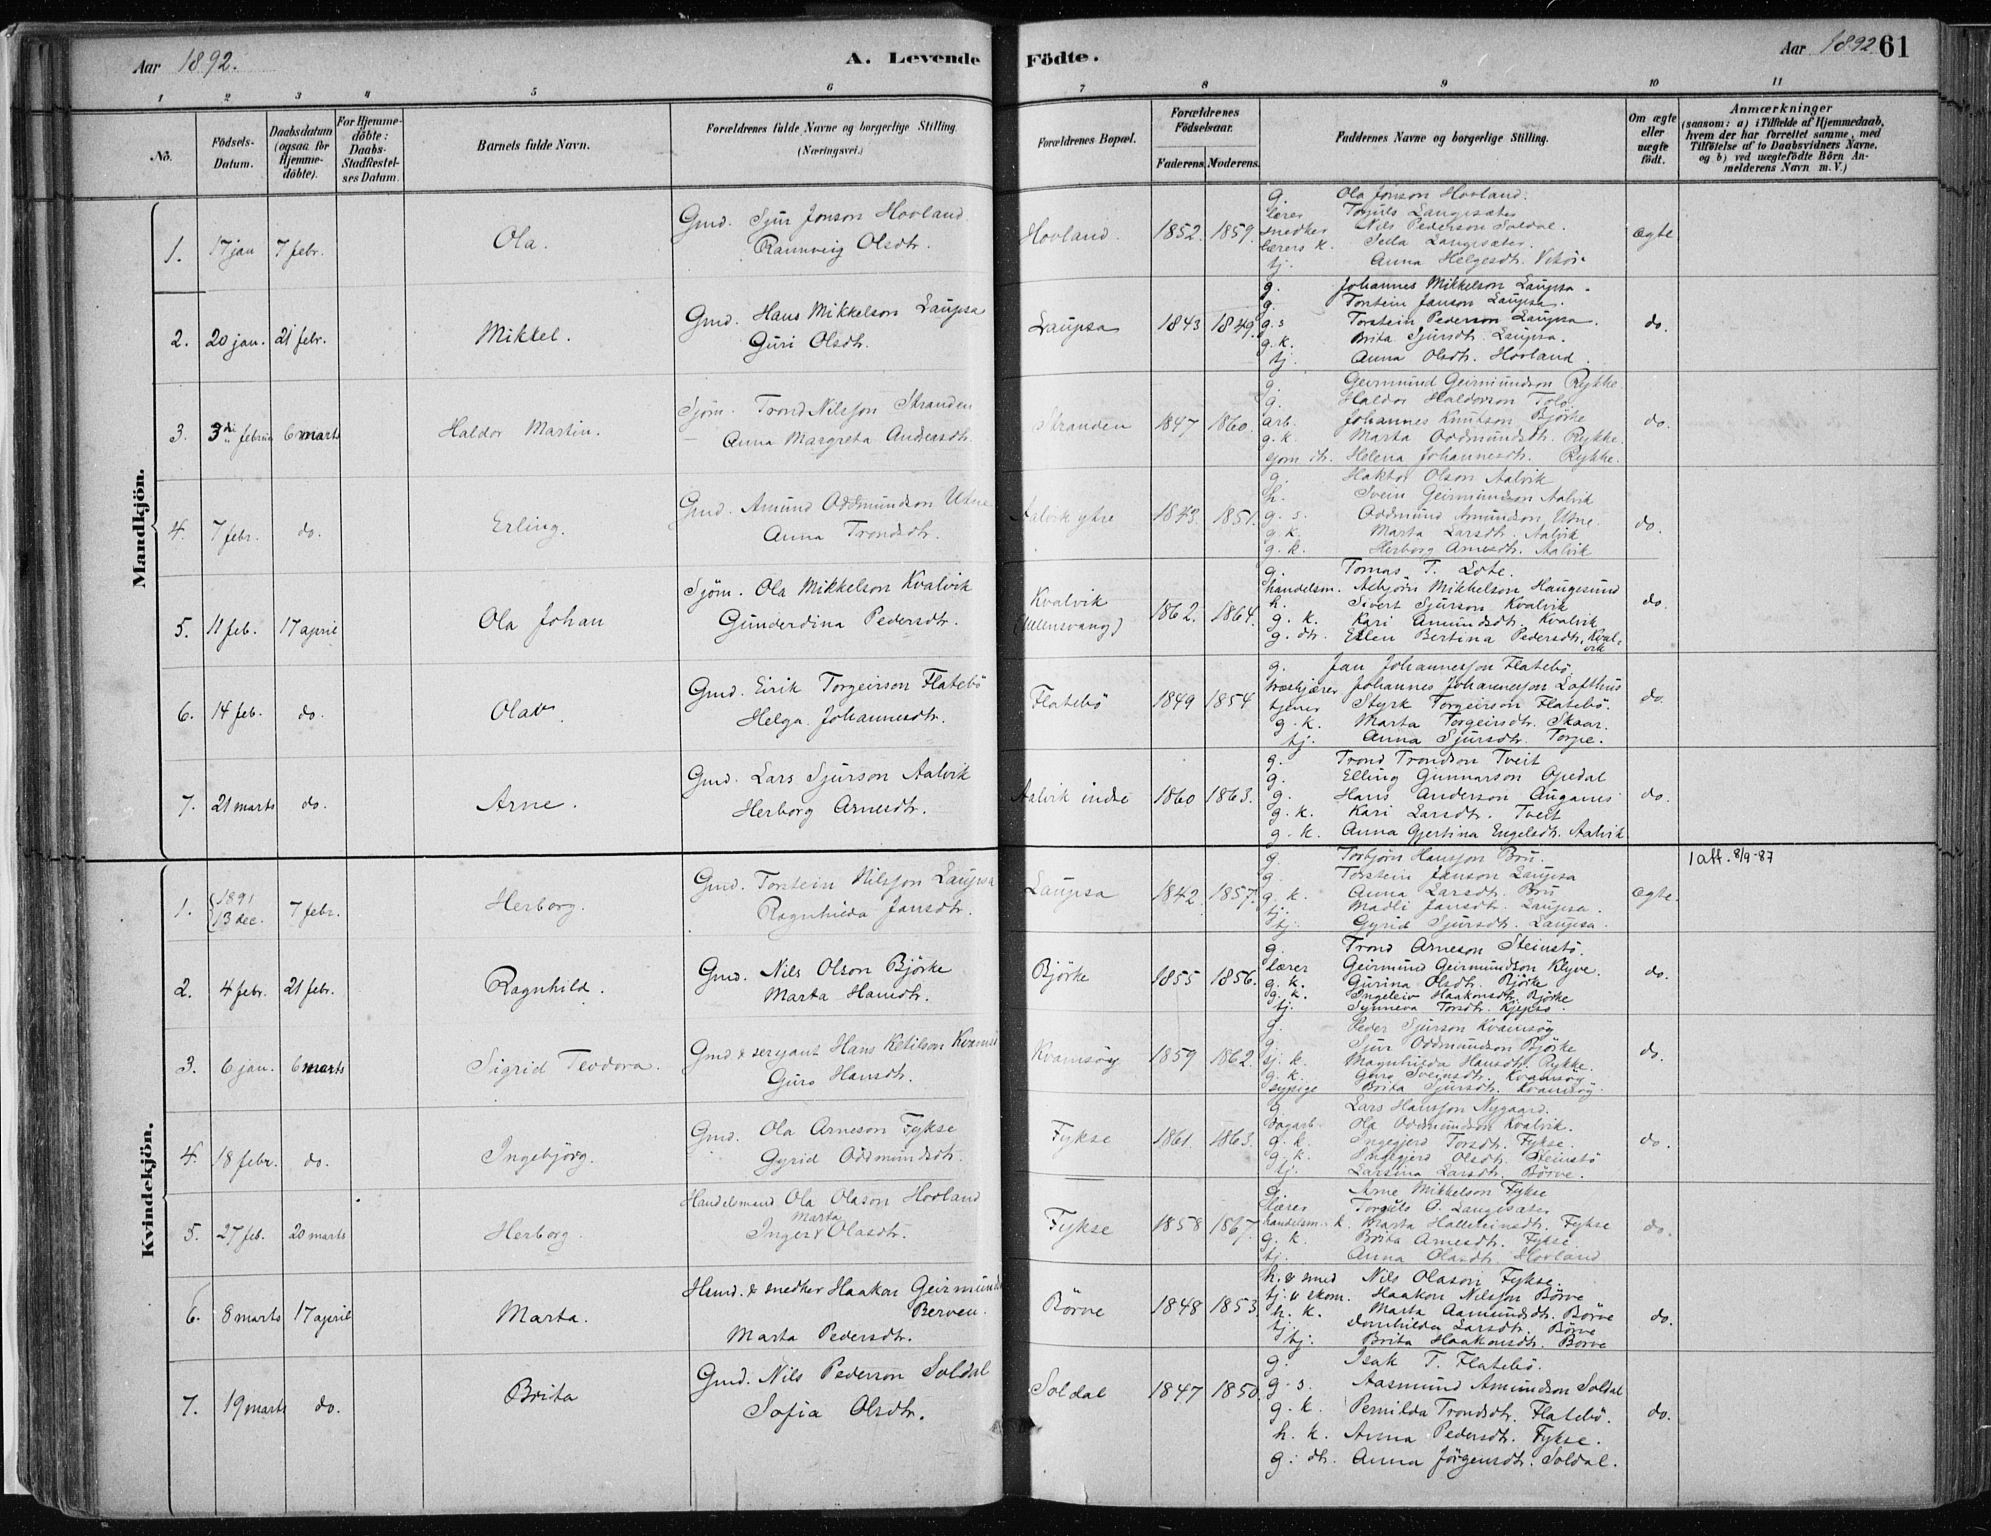 Aar 1892. A. Levende Födte. Aar 1892 61
1 2 3 4 5 6 7 8 9 10 11
No. Födsels-Datum. Daabsdatum (ogsaa for Hjemme-döbte). For Hjemme-döbte: Daabs-Stadfæstel-ses Datum. Barnets fulde Navn. Forældrenes fulde Navne og borgerlige Stilling. (Næringsvei.) Forældrenes Bopæl. Forældrenes Födselsaar. Faderens. Moderens. Faddernes Navne og borgerlige Stilling. Om ægte eller uægte födt. Anmærkninger (saasom: a) i Tilfælde af Hjemmedaab, hvem der har forrettet samme, med Tilföielse af to Daabsvidners Navne, og b) ved uægtefödte Börn An-melderens Navn m. V.)
Mandkjön.
1. 17 jan 7 febr. Ola. Gmd. Sjur Jonson Hovland
Rannveig Olsdtr. Hovland. 1852. 1859. ægte
g. Ola Jonson Hovland.
lærer Torgils Langesæter
snedker Nils Pederson Soldal.
lærers k. Seila Langesæter.
tj. Anna Helgesdtr. Vikör
2. 20 jan. 21 febr. Mikkel. Gmd. Hans Mikkelson Laupsa
Guri Olsdtr. Laupsa 1843 1849. do.
g. Johannes Mikkelson Laupsa.
g. Torstein Janson Laupsa.
g. s Torstein Pederson Laupsa.
g. k. Brita Sjursdtr. Laupsa.
tj. Anna Olsdtr. Hovland.
3. 3die februar 6 marts Haldor Martin. Sjöm. Trond Nilsson Stranden
Anna Margreta Andersdtr. Stranden 1847 1860. do.
g. Geirmund Geirmundson Rykke.
g. Haldor Haldorson Tolo
arb. Johannes Knutson Bjørke
g. k. Marta Oddmundsdtr. Rykke.
sjöm. dtr. Helena Johannesdtr. Rykke.
4. 7 febr. do. Erling. Gmd. Amund Oddmundson Utne
Anna Trondsdtr. Aalvik ytre 1843. 1851. do.
g. Haktor Olson Aalvik
h. Svein Geirmundson Aalvik
g. s. Oddmund Amundson Utne.
g. k. Marta Larsdtr. Aalvik
g. k. Herborg Arnesdtr. Aalvik
5. 11 feb. 17 april Ola Johan Sjöm. Ola Mikkelson Kvalvik
Gunderdina Pedersdtr. Kvalvik (Ullensvang) 1862. 1864. do.
g. Tomas T. Lote.
handelsm. Asbjörn Mikkelson Haugesund
h. Sivert Sjurson Kvalvik
g. k. Kari Amundsdtr. Kvalvik
g. dtr. Ellen Bertina Pedersdtr. Kvalvik
6. 14 feb. do. Olav. Gmd. Eirik Torgeirson Flatebö
Helga Johannesdtr. Flatebö 1849 1854 do.
g. Jan Johannesson Flatebö
træskjærer Johannes Johannesson Lofthus
tjener Styrk Torgeirson Flatebö.
g. k. Marta Torgeirsdtr. Skaar.
tj. Anna Sjursdtr. Torpe.
7. 21 marts do. Arne. Gmd. Lars Sjurson Aalvik
Herborg Arnesdtr. Aalvik indre 1860 1863. do.
g. Trond Trondson Tveit
g. Elling Gunnarson Opedal
g. Hans Anderson Auganes
g. k. Kari Larsdtr. Tveit
g. k. Anna Gjertina Engelsdtr. Aalvik
Kvindekjön.
1. 1891 13 dec. 7 febr. Herborg. Gmd. Torstein Nilsson Laupsa
Ragnhilda Jansdtr. Laupsa 1842 1857. ægte 1 att. 8/9-87
g. Torbjörn Hansson Bru.
g. Torstein Janson Laupsa
g. k. Anna Larsdtr. Bru
tj. Madli Jansdtr. Laupsa.
tj. Gyrid Sjursdtr. Laupsa.
2. 4 febr. 21 febr. Ragnhild. Gmd. Nils Olson Björke
Marta Hansdtr. Björke 1855 1856. do.
g. Trond Arneson Steinstö
lærer Geirmund Geirmundson Klyve.
g. k. Gurina Olsdtr. Björke
g. k. Ingeleiv Haakonsdtr. Björke
tj. Synneva Torsdtr.
3. 6 jan. 6 marts Sigrid Teodora. Gmd & sersjant Hans Ketilson Kvamsö
Guro Hansdtr. Kvamsöy 1859 1862. do.
g. Peder Sjurson Kvamsöy
g. Sjur Oddmundson Björke
sj. k. Magnhilda Hansdtr. Rykke.
g. k. Guro Sveinsdtr. Kvamsöy
sypige Brita Sjursdtr. Kvamsöy.
4. 18 febr. do. Ingebjörg. Gmd. Ola Arneson Fykse
Gyrid Oddmundsdtr. Fykse 1861. 1863. do.
g. Lars Hansson Nygaard.
dagarb. Ola Oddmundson Kvalvik.
g. k. Ingegjerd Torsdtr. Fykse.
g. k. Ingegjerd Olsdtr. Steinstö
tj. Larsina Larsdtr. Börve.
5. 27 feb. 20 marts Herborg. Handelsmand Ola Olason Hovland
Inger Marta Olasdtr. Fykse 1858 1867. do.
g. Arne Mikkelson Fykse
lærer Torgils O. Langesæter
handelsm. k. Marta Halleteinsdtr. Fykse
g. k. Brita Arnesdtr. Fykse
tj. Anna Olasdtr. Hovland
6. 8 marts 17 april Marta. Hmd. & snedker Haakon Geirmunds
Berven.
Marta Pedersdtr. Börve 1848 1853. do.
h. & smed Nils Olason Fykse.
tj. & skom. Haakon Nilsson Börve
h. k. Marta Aamundsdtr. Börve
tj. Larsdtr. Börve
tj. Brita Haakonsdtr. Börve
7. 19 marts do. Brita Gmd. Nils Pederson Soldal
Sofia Olsdtr. Soldal 1847 1850. do.
g. Isak T. Flatebö.
g. s. Aasmund Amundson Soldal
g. k. Pernilda Trondsdtr. Flatebö.
h. k. Anna Pedersdtr. Fykse.
g. dtr. Anna Jörgensdtr. Soldal.